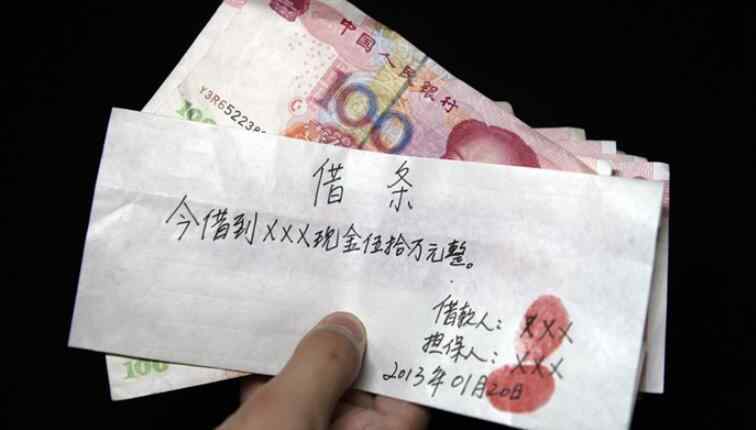 中国人民银行
100
100
借条
今借到XXX现金伍拾万元整。
借款人：XXX
担保人：XXX
2013年01月20日
100